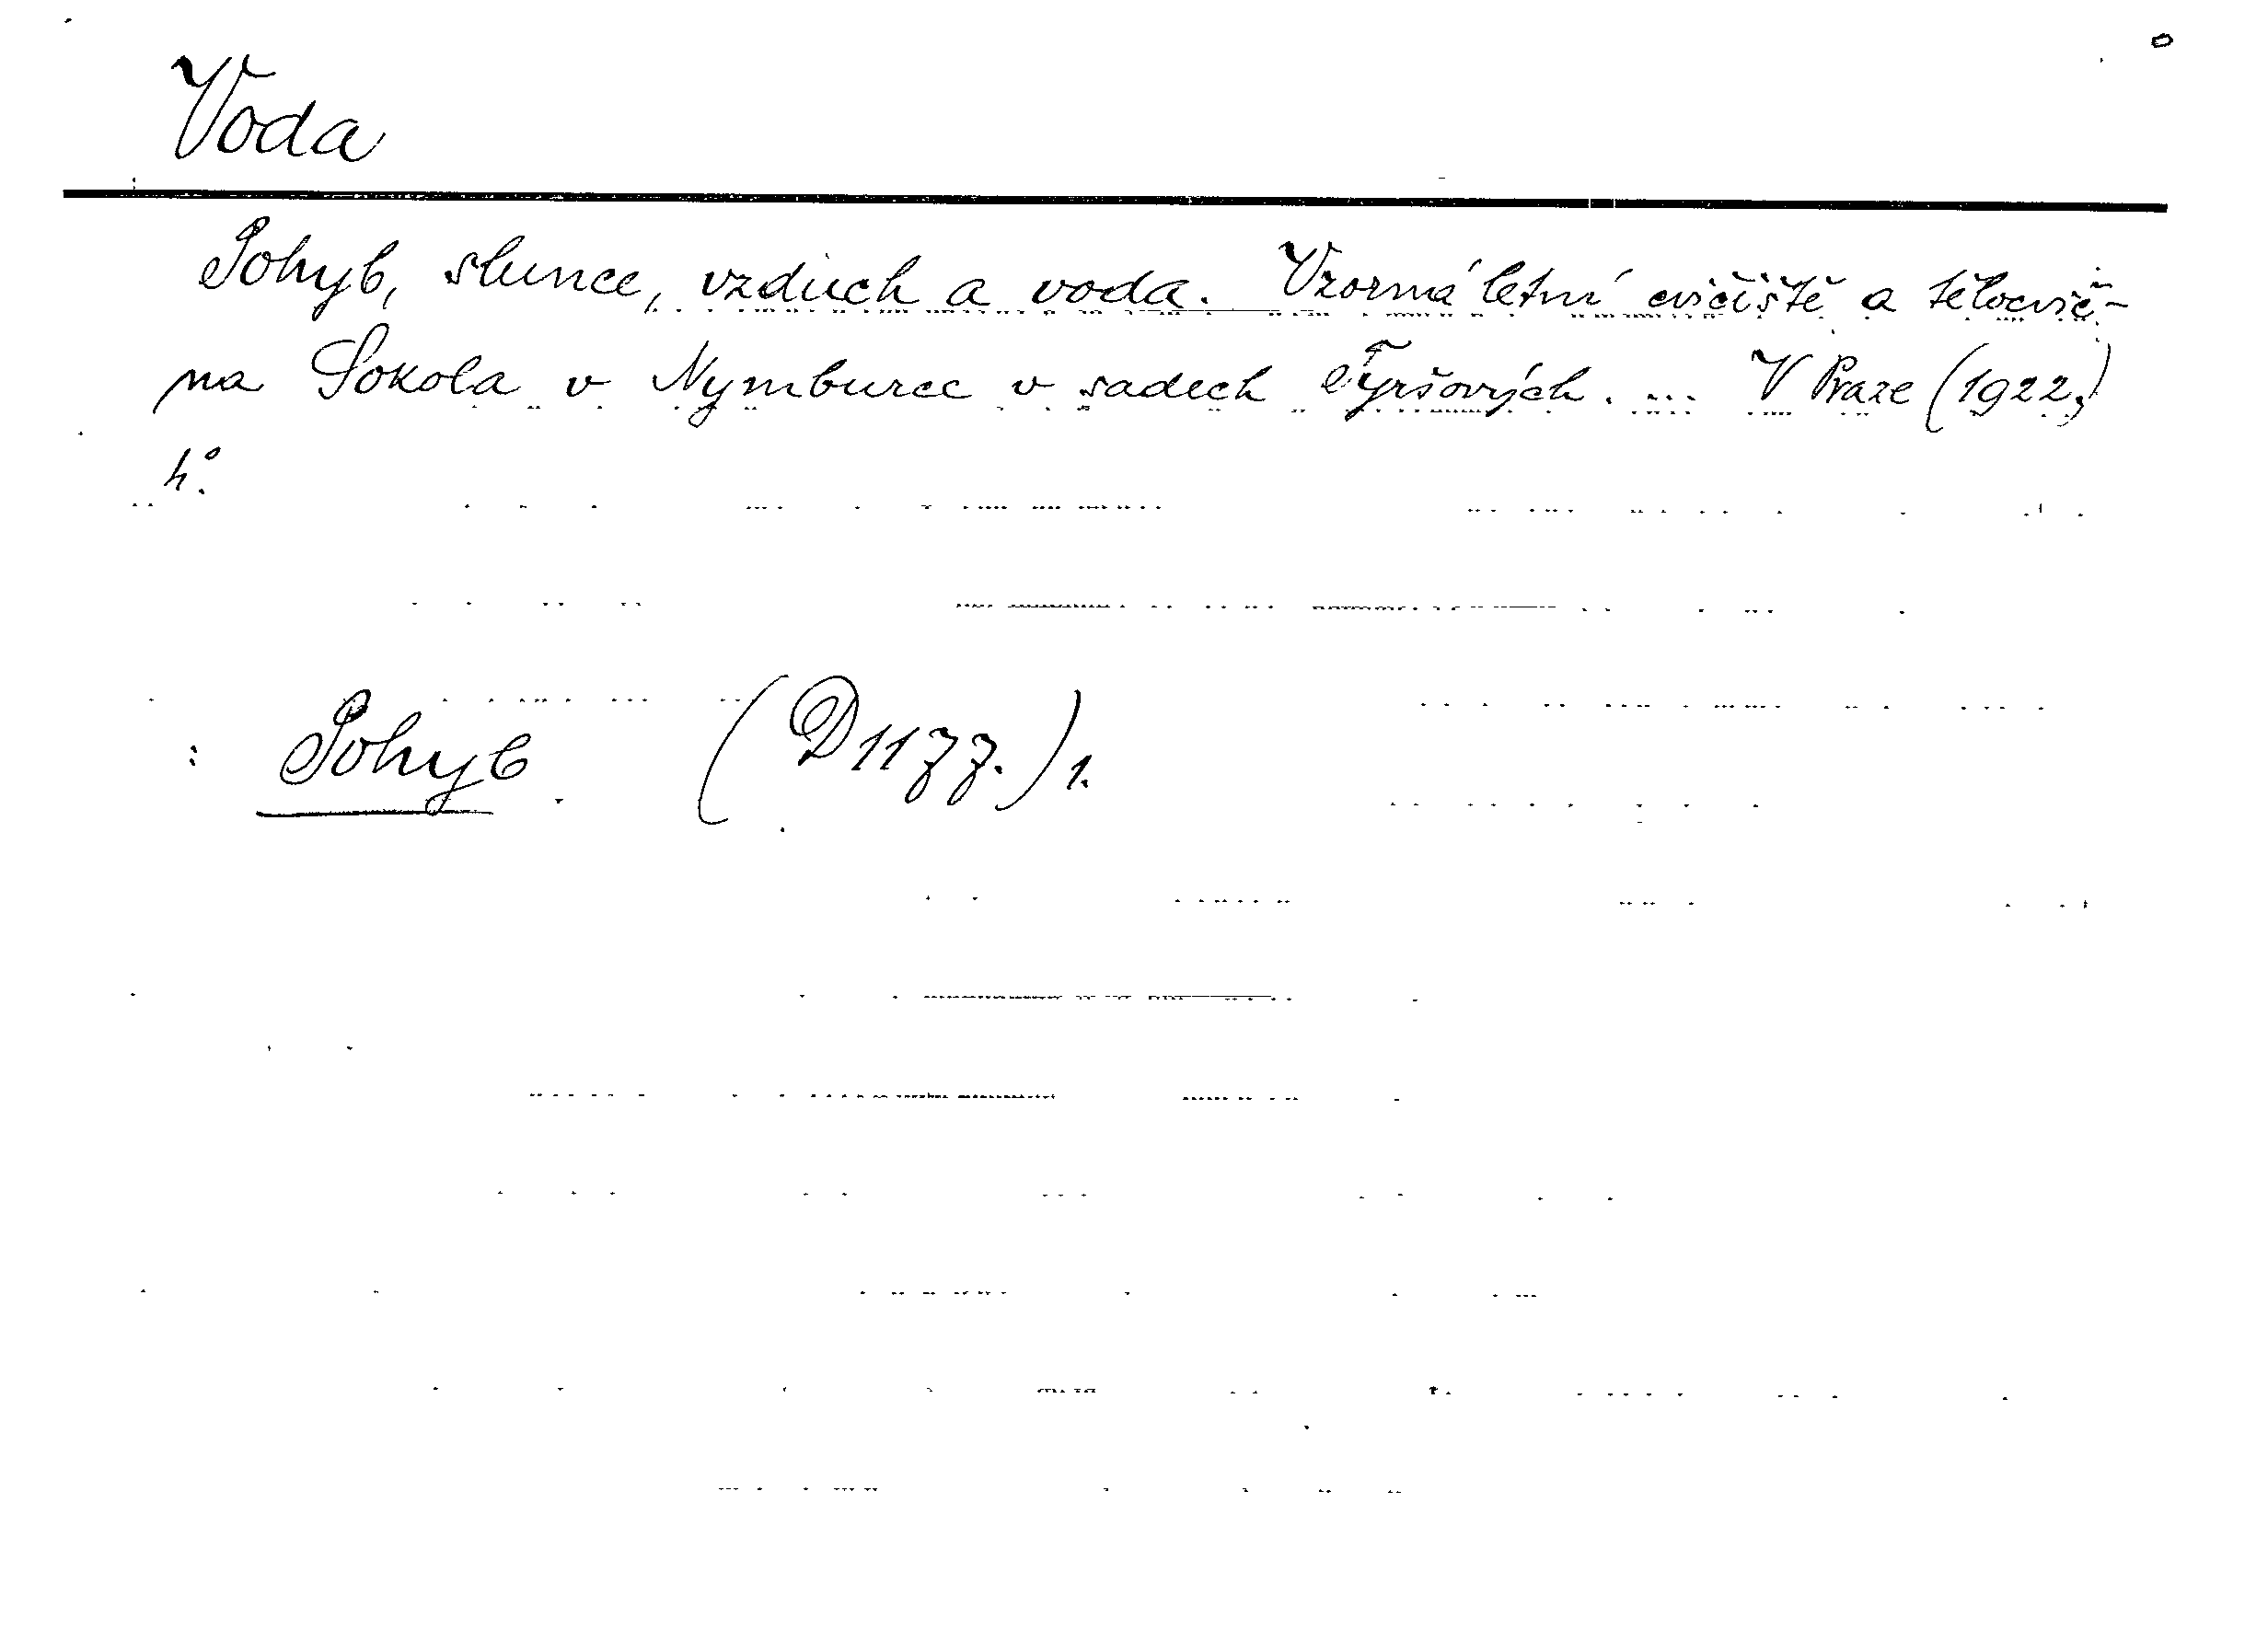 Voda
Pohyb, slunce, vzduch a voda. Vzorná letní cvičiště a tělocvič-
na Sokola v Nymburce v sadech Tyršových. ... V Praze (1922.)
4°.
: Pohyb. (D 1177.) 1.